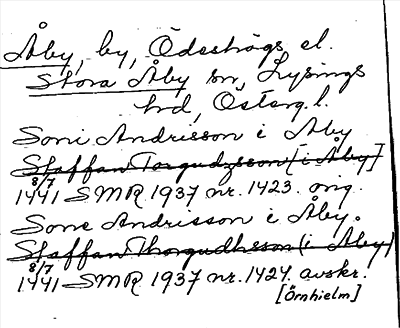 Åby, by, Ödeshögs el.
Stora Åby sn, Lysings
hrd, Österg.l.
Soni Andrisson i Åby
Staffan Torgudzsson [i Åby]
8/7
1441 SMR 1937 nr. 1423. orig.
Sone Andrisson i Åby.
Staffan Thorgudhsson (i Åby)
8/7
1441 SMR 1937 nr. 1424. avskr.
[Örnhielm]